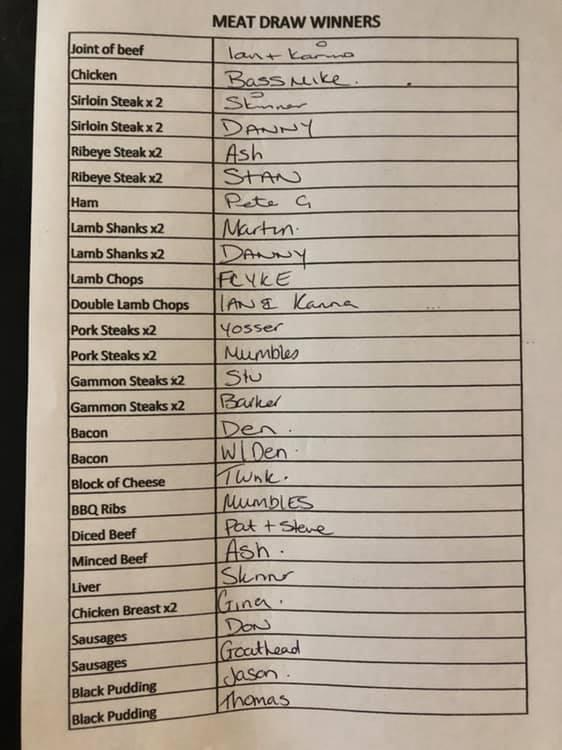 MEAT DRAW WINNERS
Joint of beef Ian + Karina
Chicken BASS MIKE.
Sirloin Steak x 2 Skinner
Sirloin Steak x 2 DANNY
Ribeye Steak x2 Ash
Ribeye Steak x2 STAN
Ham Pete G
Lamb Shanks x2 Martin.
Lamb Shanks x2 DANNY
Lamb Chops
Double Lamb Chops IAN &
Pork Steaks x2 Yosser
Pork Steaks x2 Mumbles
Gammon Steaks x2 Stu
Gammon Steaks x2 Barker
Bacon Den.
Bacon W/Den
Block of Cheese
BBQ Ribs MUMBLES
Diced Beef Pat + Steve
Minced Beef Ash.
Liver Skinner
Chicken Breast x2 Gina.
Sausages DON
Sausages Goathead
Black Pudding Jason.
Black Pudding Thomas